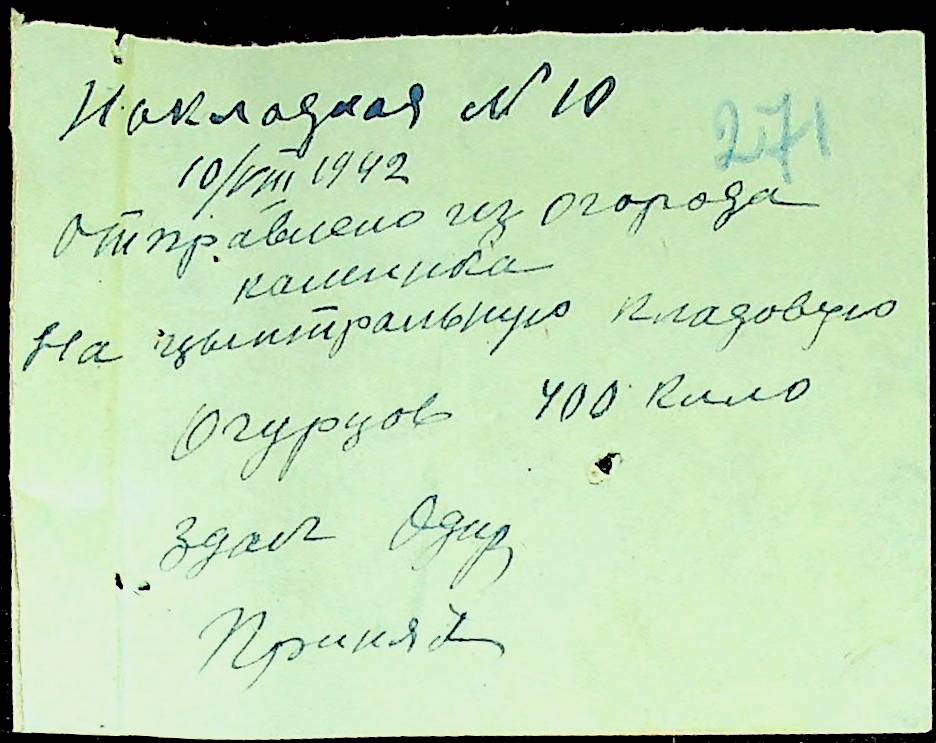 Накладная № 10
271
10/VIII 1942
Отправлено из огорода
каменка
На цынтральную кладовую
Огурцов 400 кило
Здал
Принял